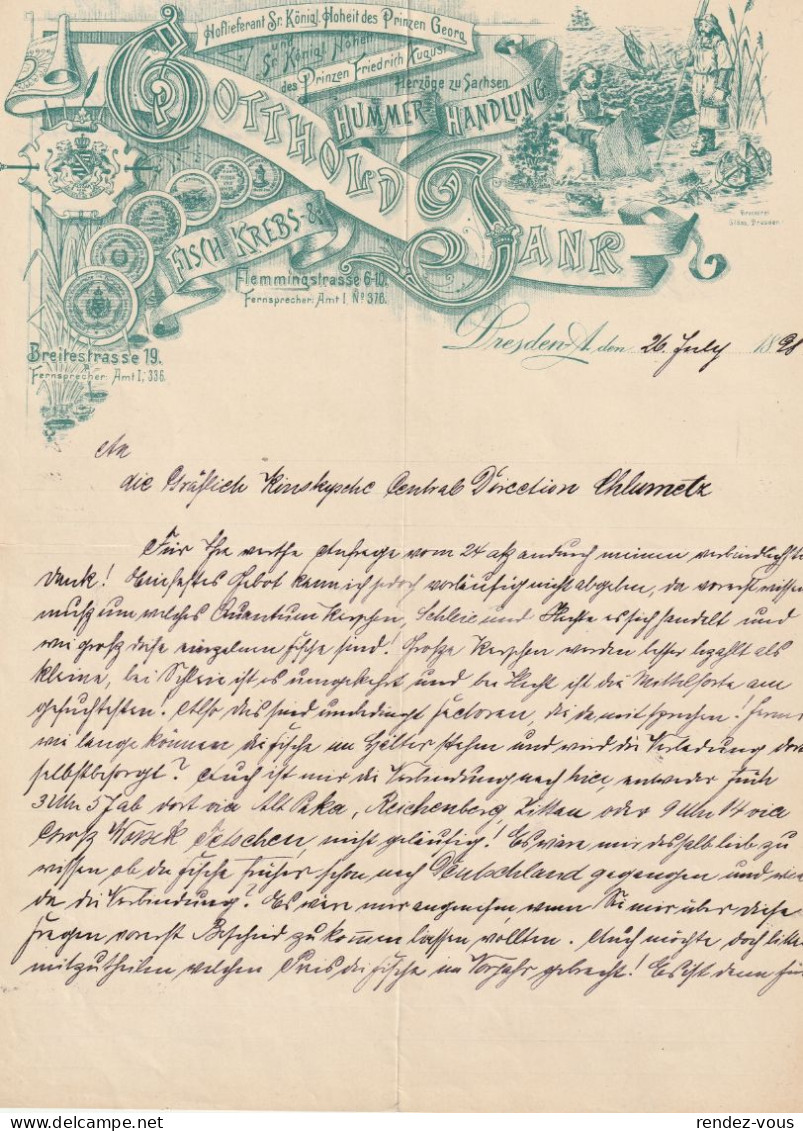 Hoflieferant Sr. Königl. Hoheit des Prinzen Georg
und
Sr. Königl. Hoheit
des Prinzen Friedrich August
Herzöge zu Sachsen
HUMMER-HANDLUNG
GOTTHOLD JANK
FISCH-KREBS-&
Flemmingstrasse 6-10.
Fernsprecher: Amt I. No 376.
Breitestrasse 19.
Fernsprecher: Amt I, 336.
Dresden-A. den 26. July 1898
An
die Gräflich Kinskysche Central Direction Chlumetz
Für Ihre werthe Anfrage vom 24 a/c andurch meinen verbindlichsten
Dank! Ein festes Gebot kann ich jedoch vorläufig nicht abgeben, da vorerst wissen
muß um welches Quantum Karpfen, Schleie und Hechte es sich handelt und
wie groß diese einzelnen Fische sind! Große Karpfen werden besser bezahlt als
kleine, bei Schleie ist es umgekehrt und bei Hecht ist die Mittelsorte am
gesuchtesten! Also das sind unbedingt Factoren, die da mitsprechen! Ferner
wie lange können die Fische im Hälter stehen und wird die Verladung dort
selbst besorgt? Auch ist mir die Verbindung nach hier, entweder früh
3 Uhr 5 J ab dort via Alt Paka, Reichenberg Zittau oder 9 Uhr 14 via
Groß Wossek Tetschen, nicht geläufig! Es wäre mir deshalb lieb zu
wissen, ob die Fische früher schon nach Deutschland gegangen und wie
da die Verbindung? Es wäre mir angenehm wenn Sie mir über diese
Fragen vorerst Bescheid zukommen lassen wollten. Auch möchte doch bitten
mitzutheilen welchen Preis die Fische im Vorjahr gebracht! Es ist denn für
rendez-vous